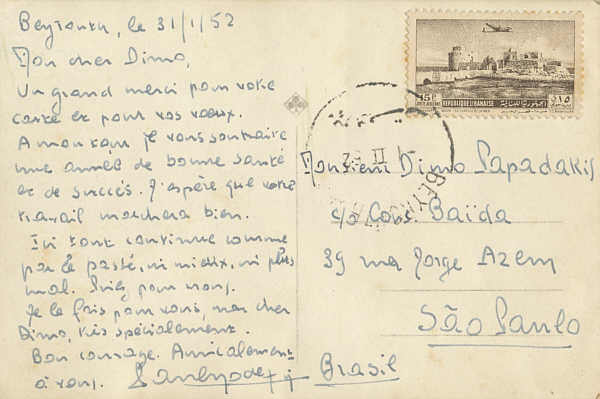 Beyrouth, le 31/1/52
Mon cher Dimo,
Un grand merci pour votre
carte et pour vos vœux.
A mon tour je vous souhaite
une année de bonne santé
et de succès. J'espère que votre
travail marchera bien.
Ici tout continue comme
par le passé, ni mieux, ni plus
mal. Priez pour nous.
Je le fais pour vous, mon cher
Dimo, très spécialement.
Bon courage. Amicalement
à vous.
15P
REPUBLIQUE LIBANAISE
الجمهورية اللبنانية
١٥
II
BEY
Monsieur Dimo Papadakis
c/o Cons. Baïda
39 rua Jorge Azem
São Paulo
Brasil